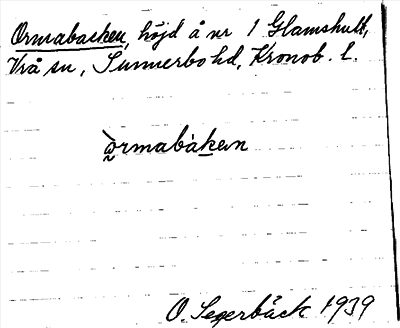 Ormabacken, höjd å nr 1 Glamshult,
Vrå sn, Sunnerbo hd, Kronob. l.
òrmabàkan
O. Segerbäck 1939